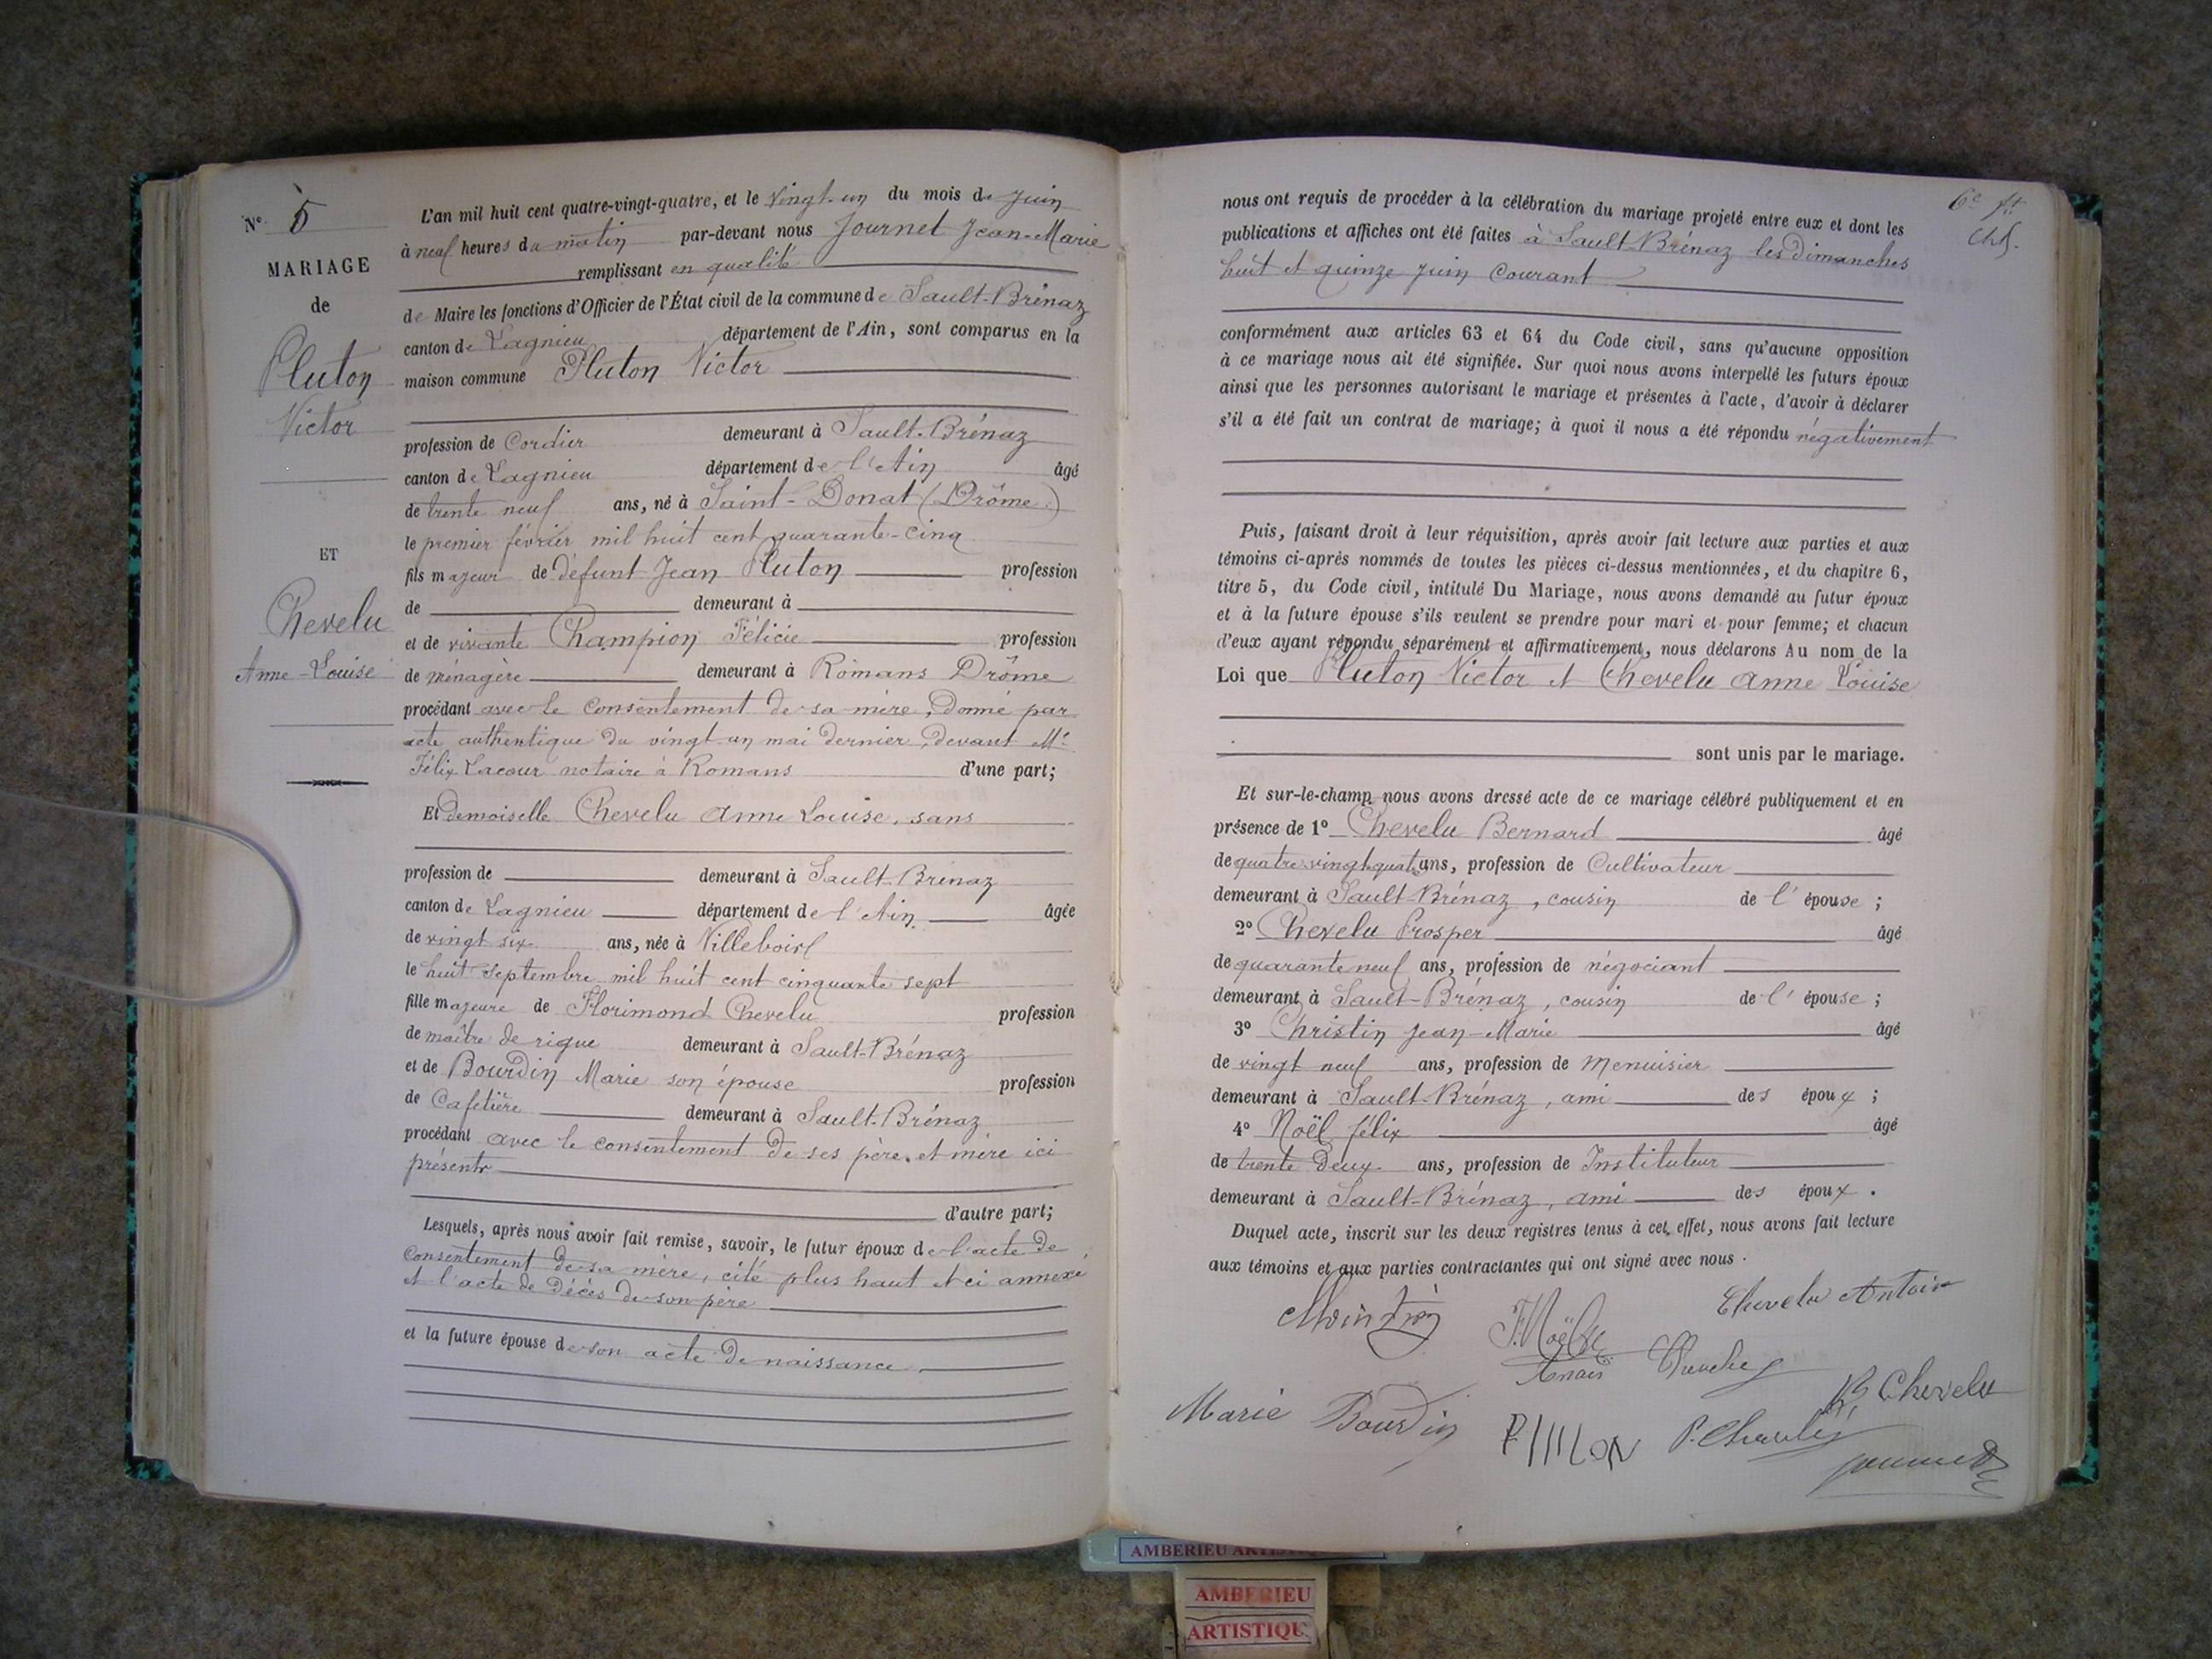 N° 5
MARIAGE
de
Pluton
Victor
ET
Chevelu
Anne-Louise
L'an mil huit cent quatre-vingt-quatre, et le vingt-un du mois de juin
à neuf heures du matin par-devant nous Journet Jean-Marie
remplissant en qualité
de Maire les fonctions d'Officier de l'État civil de la commune de Sault-Brénaz
canton de Lagnieu département de l'Ain, sont comparus en la
maison commune Pluton Victor
profession de Cordier demeurant à Sault-Brénaz
canton de Lagnieu département de l'Ain âgé
de trente neuf ans, né à Saint-Donat (Drôme)
le premier février mil huit cent quarante-cinq
fils majeur de défunt Jean Pluton profession
de demeurant à
et de vivante Champion Félicie profession
de ménagère demeurant à Romans Drôme
procédant avec le consentement de sa mère, donné par
acte authentique du vingt-un mai dernier, devant Me
Félix Lacour notaire à Romans d'une part;
Et demoiselle Chevelu Anne Louise, sans
profession de demeurant à Sault-Brénaz
canton de Lagnieu département de l'Ain âgée
de vingt six ans, née à Villebois
le huit septembre mil huit cent cinquante sept
fille majeure de Florimond Chevelu profession
de maître de rigue demeurant à Sault-Brénaz
et de Bourdin Marie son épouse profession
de Cafetière demeurant à Sault-Brénaz
procédant avec le consentement de ses père et mère ici
présents
d'autre part;
Lesquels, après nous avoir fait remise, savoir, le futur époux de l'acte de
consentement de sa mère, cité plus haut et ci annexé
et l'acte de décès de son père
et la future épouse de son acte de naissance
6e ft
nous ont requis de procéder à la célébration du mariage projeté entre eux et dont les
publications et affiches ont été faites à Sault-Brénaz les dimanches
huit et quinze juin courant
conformément aux articles 63 et 64 du Code civil, sans qu'aucune opposition
à ce mariage nous ait été signifiée. Sur quoi nous avons interpellé les futurs époux
ainsi que les personnes autorisant le mariage et présentes à l'acte, d'avoir à déclarer
s'il a été fait un contrat de mariage; à quoi il nous a été répondu négativement
Puis, faisant droit à leur réquisition, après avoir fait lecture aux parties et aux
témoins ci-après nommés de toutes les pièces ci-dessus mentionnées, et du chapitre 6,
titre 5, du Code civil, intitulé Du Mariage, nous avons demandé au futur époux
et à la future épouse s'ils veulent se prendre pour mari et pour femme; et chacun
d'eux ayant répondu séparément et affirmativement, nous déclarons Au nom de la
Loi que Pluton Victor et Chevelu Anne Louise
sont unis par le mariage.
Et sur-le-champ nous avons dressé acte de ce mariage célébré publiquement et en
présence de 1° Chevelu Bernard âgé
de quatre-vingt-quatre ans, profession de Cultivateur
demeurant à Sault-Brénaz, cousin de l'épouse;
2° Chevelu Prosper âgé
de quarante neuf ans, profession de négociant
demeurant à Sault-Brénaz, cousin de l'épouse;
3° Christin Jean-Marie âgé
de vingt neuf ans, profession de Menuisier
demeurant à Sault-Brénaz, ami des époux;
4° Noël félix âgé
de trente deux ans, profession de Instituteur
demeurant à Sault-Brénaz, ami des époux.
Duquel acte, inscrit sur les deux registres tenus à cet effet, nous avons fait lecture
aux témoins et aux parties contractantes qui ont signé avec nous.
Chevelu
F. Noël
Marie Bourdin
B Chevelu
AMBERIEU
AMBERIEU
ARTISTIQU